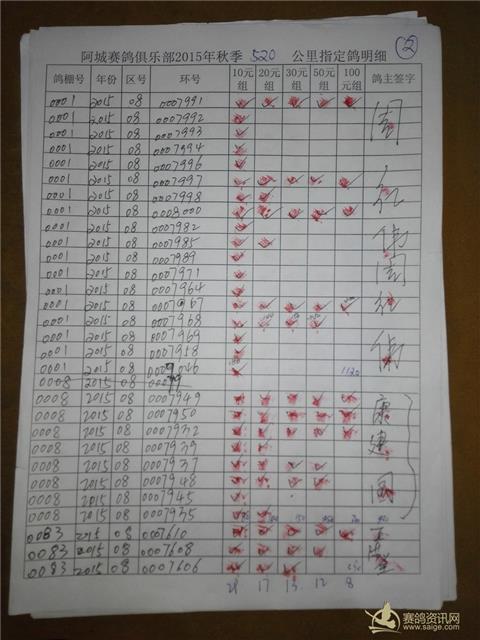 阿城赛鸽俱乐部2015年秋季 520 公里指定鸽明细 ②
鸽棚号 年份 区号 环号 10元组 20元组 30元组 50元组 100元组 鸽主签字
0001 2015 08 0007991
0001 2015 08 0007992
0001 2015 08 0007993
0001 2015 08 0007994
0001 2015 08 0007996
0001 2015 08 0007997
0001 2015 08 0007998
0001 2015 08 0008000
0001 2015 08 0007982
0001 2015 08 0007985
0001 2015 08 0007989
0001 2015 08 0007971
0001 2015 08 0007964
0001 2015 08 0007967
0001 2015 08 0007968
0001 2015 08 0007969
0001 2015 08 0007958
0001 2015 08 0009046 1120
0008 2015 08
0008 2015 08 0007949 康
0008 2015 08 0007950
0008 2015 08 0007932 建
0008 2015 08 0007939
0008 2015 08 0007937
0008 2015 08 0007948 国
0008 2015 08 0007945
0008 2015 08 0007935
0083 2015 08 0007610
0083 2015 08 0007608
0083 2015 08 0007606
17 13 12 8
赛鸽资讯网
www.saige.com